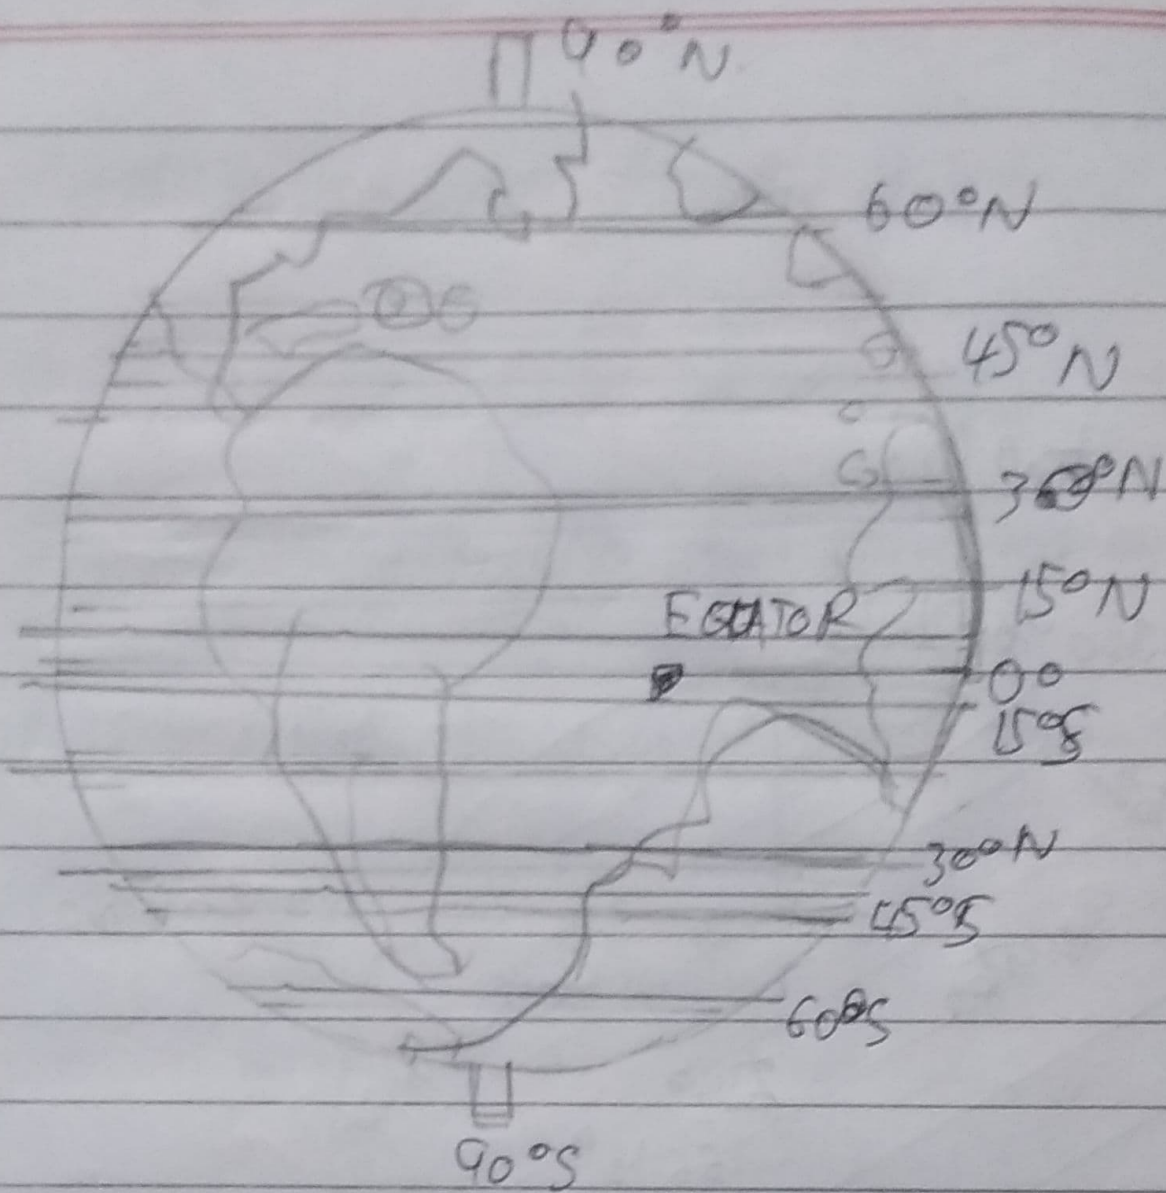 90°N
60°N
45°N
30°N
15°N
EQUATOR
0°
15°S
30°N
45°S
60°S
90°S